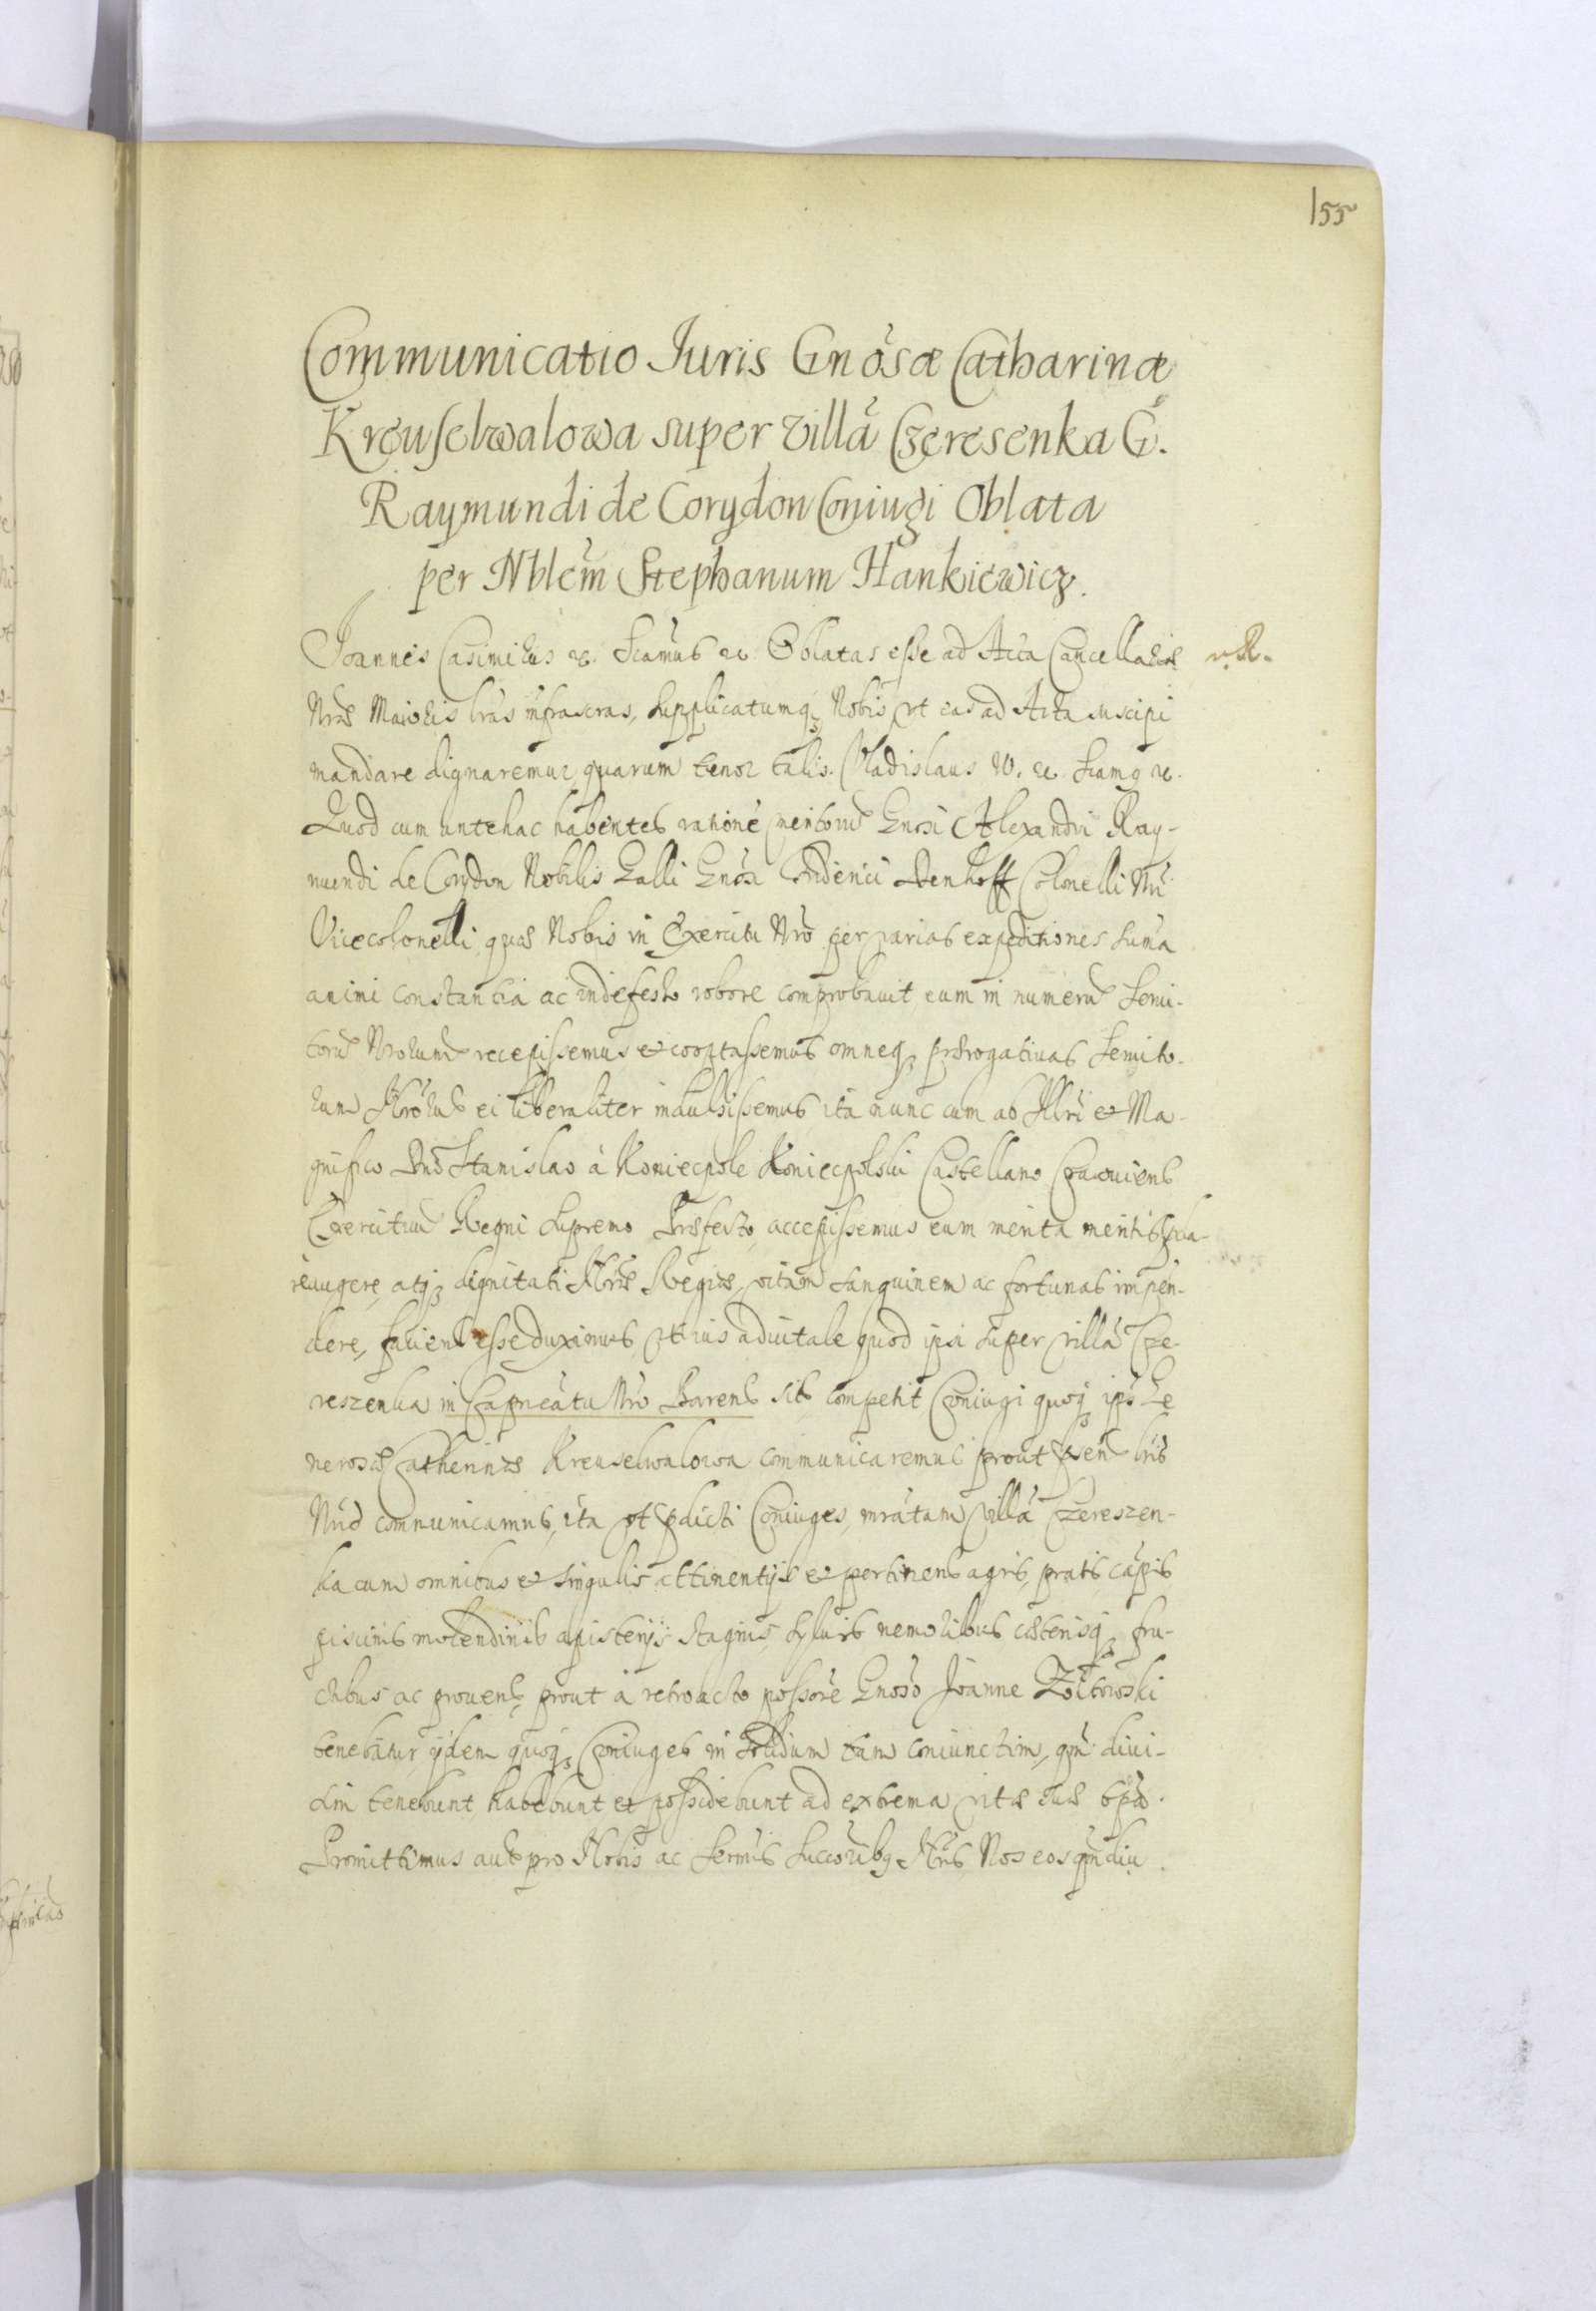 155
Communicatio Juris Gnosæ Catharinæ
Kreuselwalowa super villã Czeresenka G.
Raymundi de Corydon Coniugi Oblata
per Nblem Stephanum Hankiewicz.
Joannes Casimirus &. Scamus & Oblatas esse ad Acta Cancellariæ
Nræ Maioris lras infrascras, supplicatumq Nobis vt eas ad Acta suscipi
mandare dignaremur quarum tenor talis. Vladislaus IV. &. Scamq &.
Quod cum antehac habentes rationẽ meritorũ Gnosi Alexandri Ray-
mundi de Corydon Nobilis Galli Gnosi Denhoff Colonelli Nri
Vicecolonelli, quæ Nobis in Exercitu Nro per varias expeditiones suma
animi constantia ac indefesso robore comprobauit, eum in numerũ Serui-
torũ Nrorum recepissemus et cooptassemus omneq prærogatiuas Seruito-
rum Nrorum ei liberaliter indulsissemus ita nunc cum ab Illri et Ma-
gnifico Dno Stanislao à Koniecpole Koniecpolski Castellano Cracouiens
Exercituũ Regni Supremo Præfecto, accepissemus eum merita meritis
augere, atq dignitati Nræ Regiæ, vitam sanguinem ac fortunas impen-
dere, esse duximus vt ius aduitale quod ipsi super villã Cze-
reszenka in Capneatu Nro Barens sit competit Coniugi quoq ips Ge
nerosæ Catherinæ Kreuselwalowa communicaremus prout psen lris
Nris communicamus, ita vt pdicti Coniuges, mratam villã Czereszen-
ka cum omnibus et singulis attinentijs et pertinens agris, pratis, cãpis
piscinis molendinis stagnis, syluis nemoribus cæterisq fru-
ctibus ac prouens, prout à retroacto possore Gnoso Joanne Zoltowski
tenebatur, ijdem quoq Coniuges in solidum tam coniunctim, qm diui-
sim tenebunt habebunt et possidebunt ad extrema vitæ suæ tpa.
Promittimus aut pro Nobis ac Sermis Succoribq Nris Nos eos qmdiu